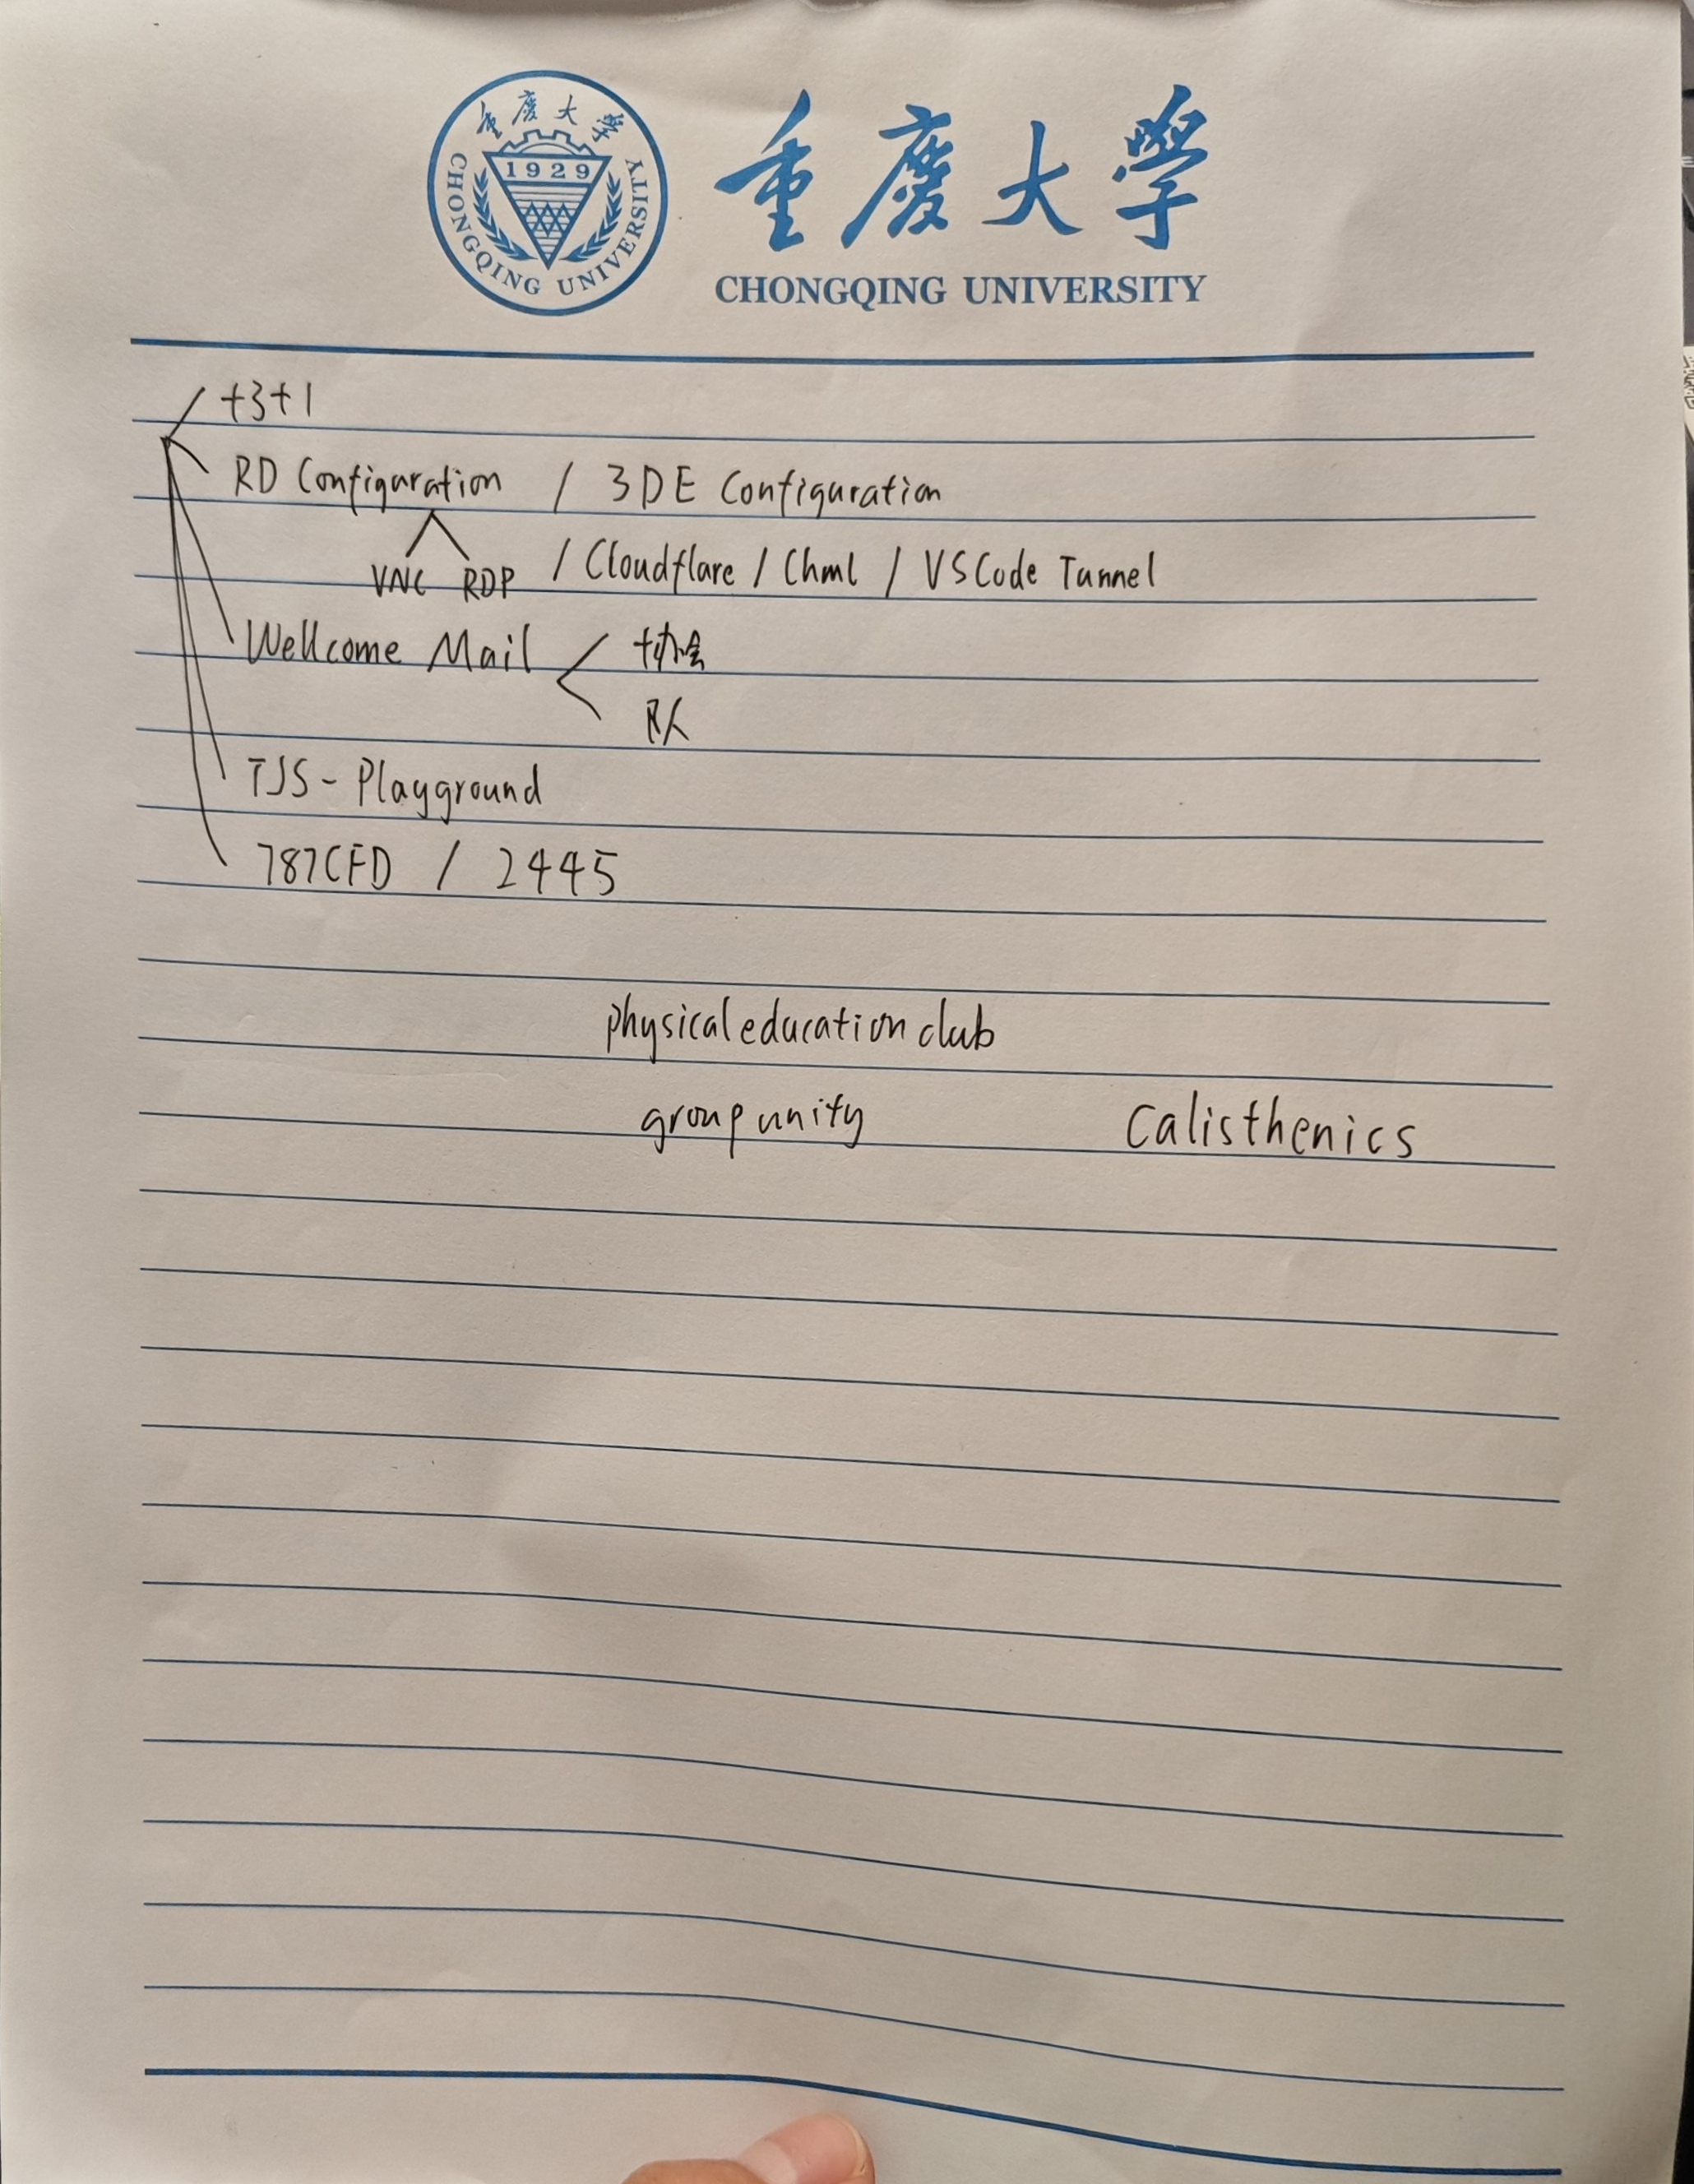 重慶大學
1929
CHONGQING UNIVERSITY
重慶大學
CHONGQING UNIVERSITY
+3+1
RD Configuration / 3DE Configuration
VNC RDP / Cloudflare / Chml / VSCode Tunnel
Wellcome Mail 协会
队
TJS - Playground
787CFD / 2445
physical education club
group unity Calisthenics